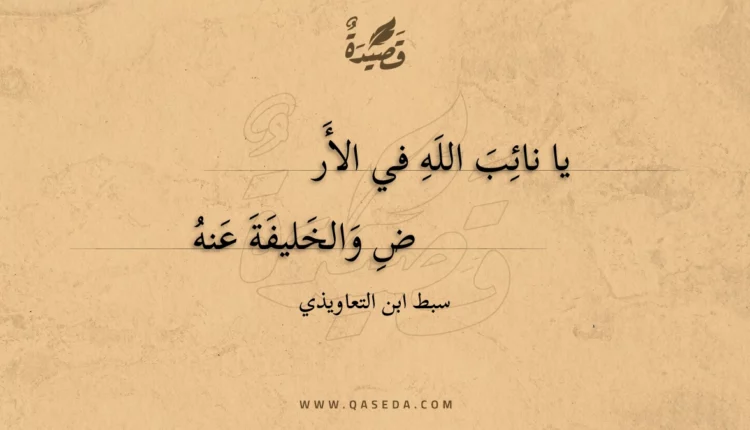 قَصِيْدَةٌ
يا نائِبَ اللَهِ في الأَر
ضِ وَالخَليفَةَ عَنهُ
سبط ابن التعاويذي
WWW.QASEDA.COM